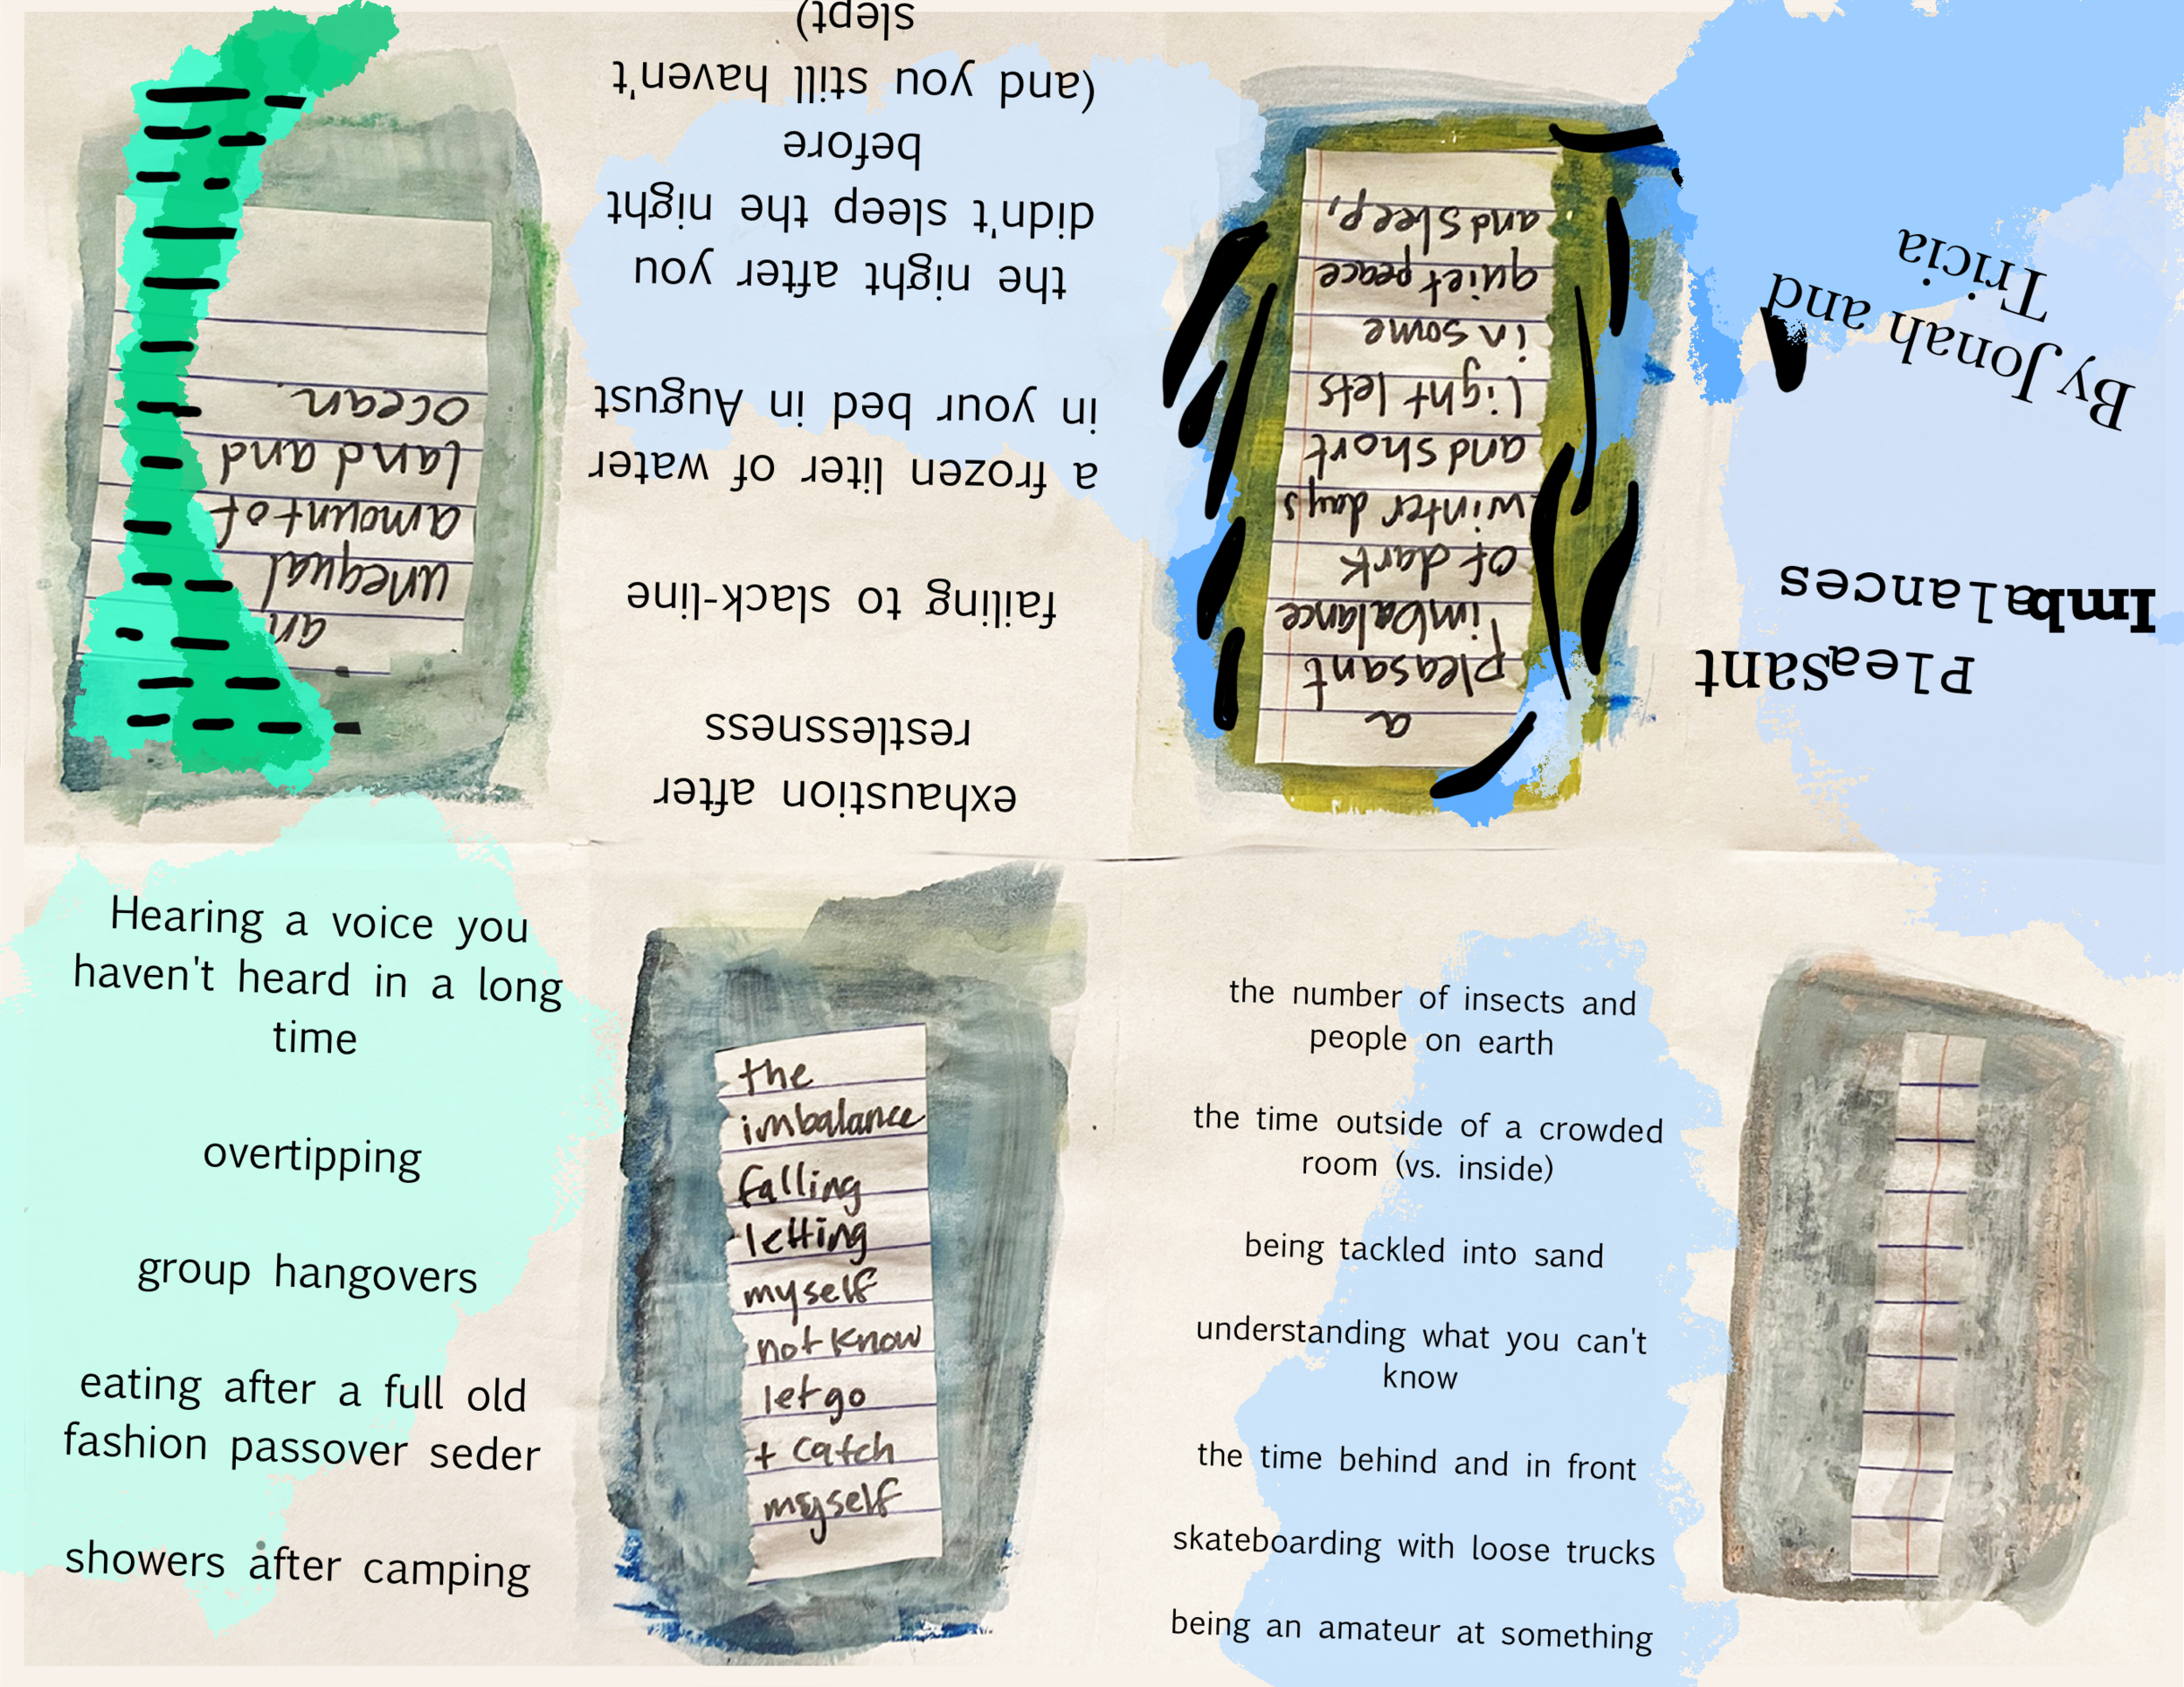 Pleasant
Imbalances
By Jonah and
Tricia
a
pleasant
imbalance
of dark
winter days
and short
light lets
in some
quiet peace
and sleep,
exhaustion after
restlessness
failing to slack-line
a frozen liter of water
in your bed in August
the night after you
didn't sleep the night
before
(and you still haven't
slept)
an
unequal
amount of
land and
ocean.
Hearing a voice you
haven't heard in a long
time
overtipping
group hangovers
eating after a full old
fashion passover seder
showers after camping
the
imbalance
falling
letting
myself
not know
let go
+ catch
myself
the number of insects and
people on earth
the time outside of a crowded
room (vs. inside)
being tackled into sand
understanding what you can't
know
the time behind and in front
skateboarding with loose trucks
being an amateur at something